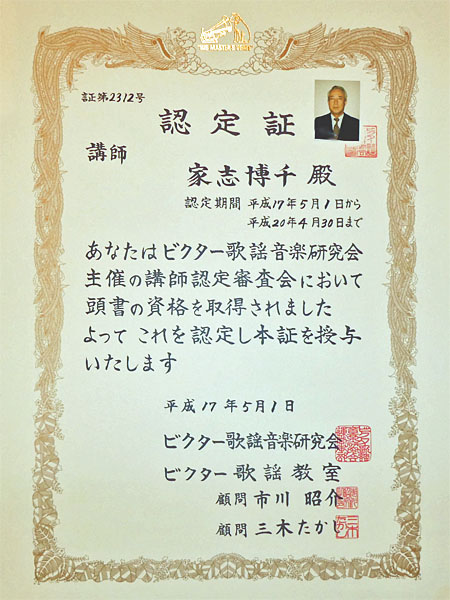 "HIS MASTER'S VOICE"
証第2312号
認定証
講師
家志博千 殿
認定期間 平成17年5月1日から
平成20年4月30日まで
あなたはビクター歌謡音楽研究会
主催の講師認定審査会において
頭書の資格を取得されました
よって これを認定し本証を授与
いたします
平成17年5月1日
ビクター歌謡音楽研究会
ビクター歌謡教室
顧問 市川 昭介
顧問 三木たかし